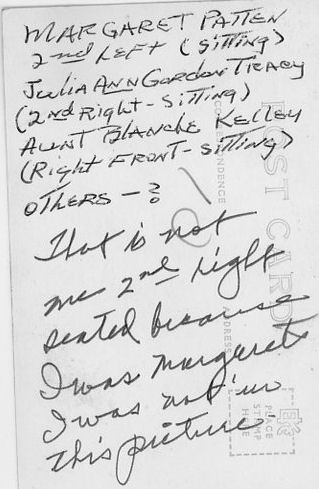 MARGARET PATTEN
2nd LEFT (SITTING)
Julia ANN Gordon TRACY
(2nd Right - SITTING)
AUNT Blanche Kelley
(Right FRONT - SITTING)
OTHERS - ?
That is not
me 2nd right
seated because
I was Margaret
I was not in
this picture.
POST CARD
CORRESPONDENCE
ADDRESS
PLACE
STAMP
HERE